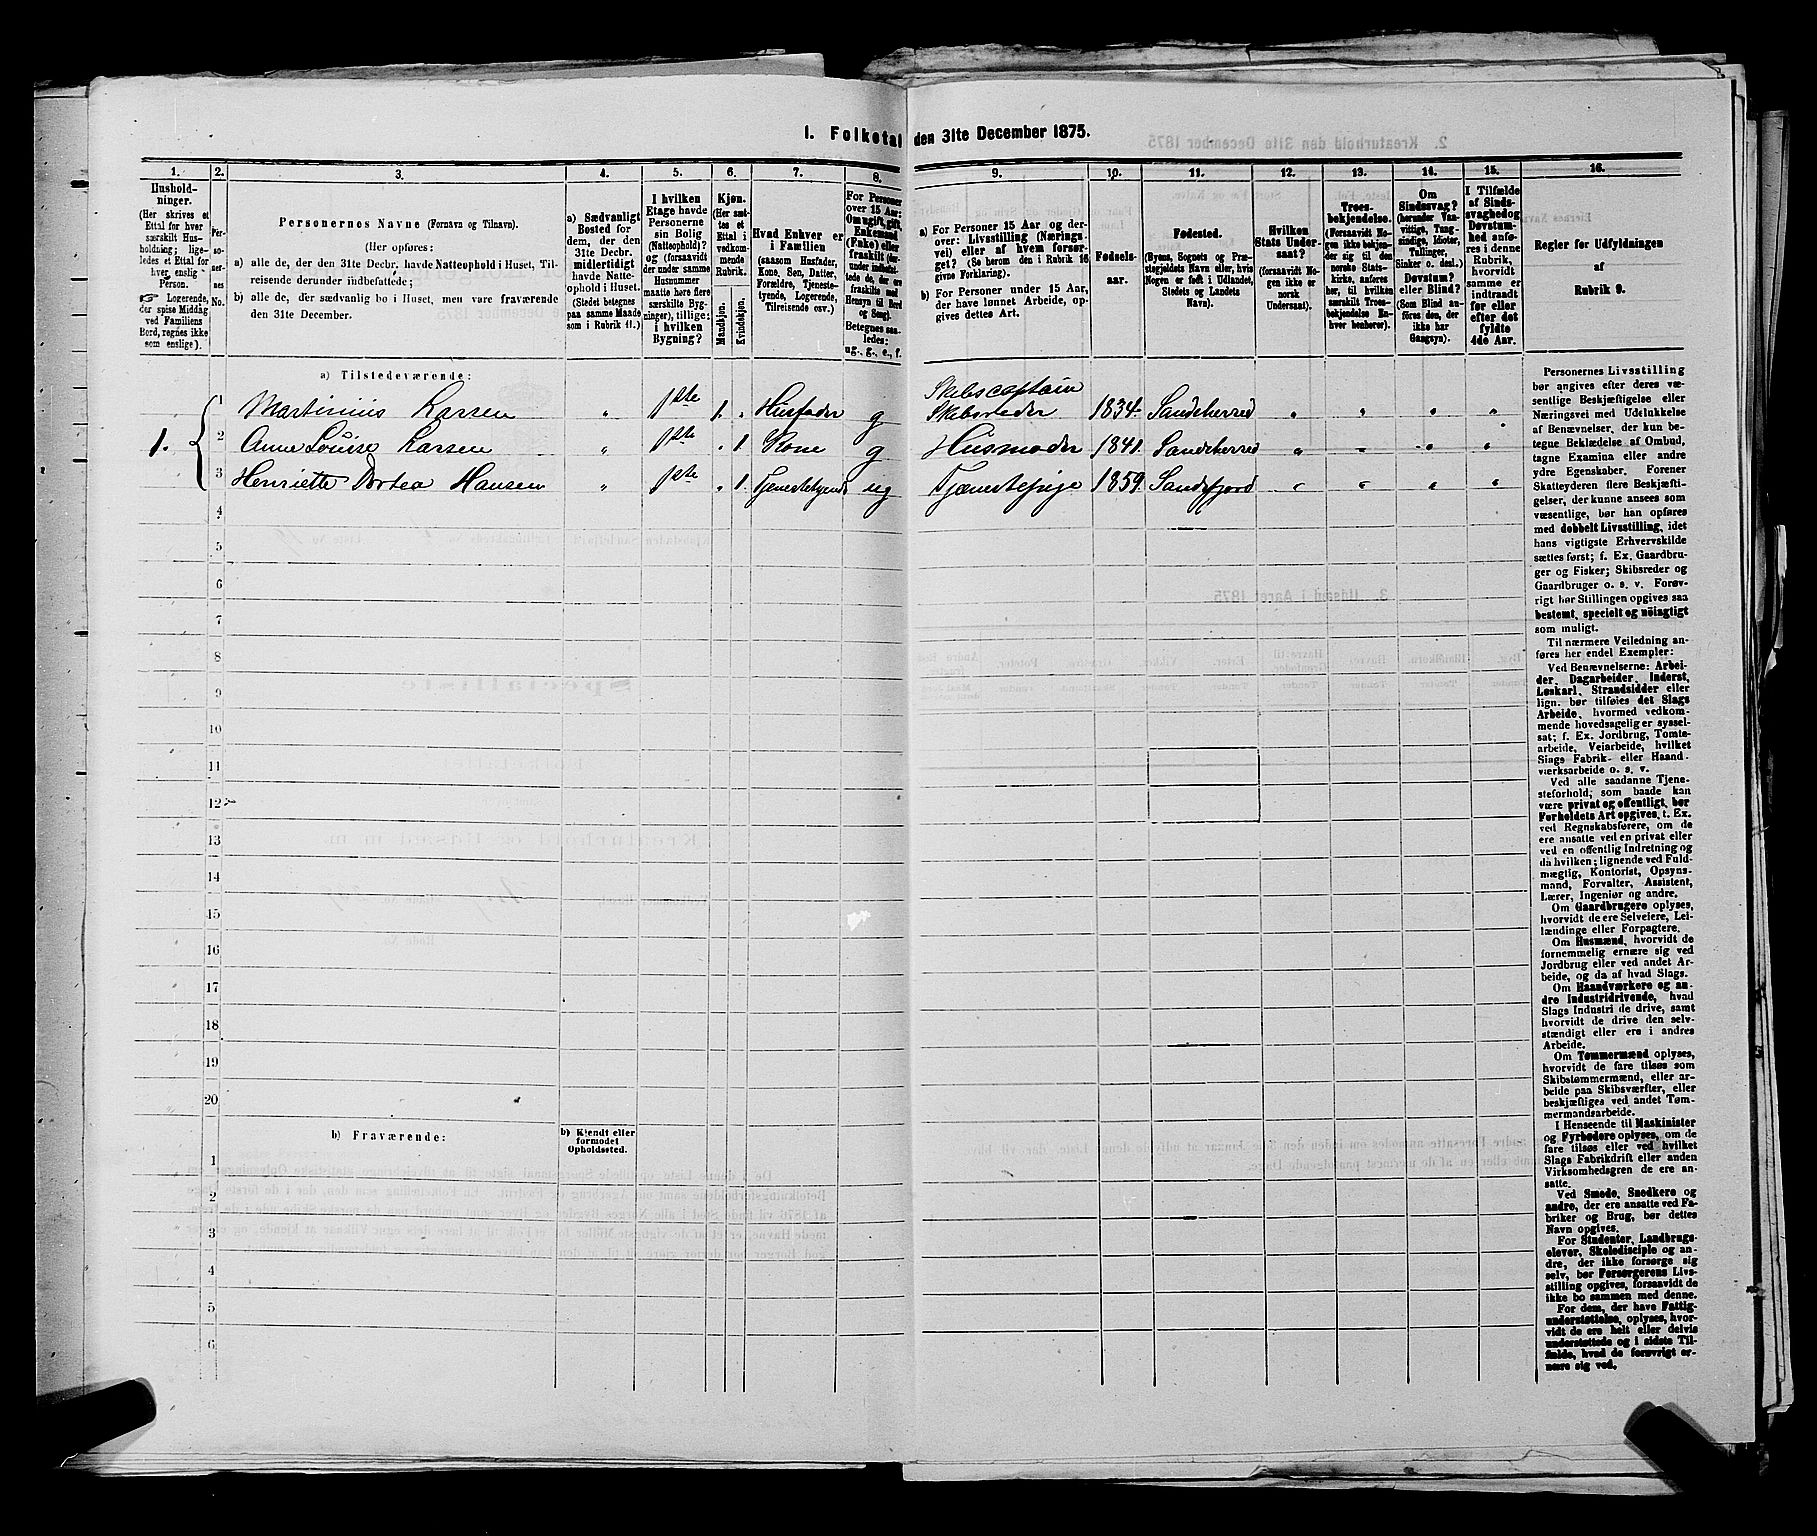 1. Folketal den 31te December 1875.
1. 2. 3. 4. 5. 6. 7. 8. 9. 10. 11. 12. 13. 14. 15. 16.
Hushold-
ninger.
(Her skrives et
Ettal for hver
særskilt Hus-
holdning; lige-
ledes et Ettal for
hver enslig
Person.
☞ Logerende,
der spise Middag
ved Familiens
Bord, regnes ikke
som enslige).
Per-
so-
ner-
nes
No.
Personernes Navne (Fornavn og Tilnavn).
(Her opføres:
a) alle de, der den 31te Decbr. havde Natteophold i Huset, Til-
reisende derunder indbefattede;
b) alle de, der sædvanlig bo i Huset, men vare fraværende
den 31te December.
a) Sædvanligt
Bosted for
dem, der den
31te Decbr.
midlertidigt
havde Natte-
ophold i Huset.
(Stedet betegnes
paa samme Maade
som i Rubrik 11.)
I hvilken
Etage havde
Personerne
sin Bolig
(Natteophold)?
og (forsaavidt
der under samme
Husnummer
maatte høre flere
særskilte Byg-
ninger), tillige:
i hvilken
Bygning?
Kjøn.
(Her sæt-
tes et
Ettal i
vedkom-
mende
Rubrik.
Mandkjøn.
Kvindekjøn.
Hvad Enhver er
i Familien
(saasom Husfader,
Kone, Søn, Datter,
Forældre, Tjeneste-
tyende, Logerende,
Tilreisende osv.)
For Personer
over 15 Aar:
Om ugift, gift,
Enkemand
(Enke) eller
fraskilt (der-
under indbefat-
tede de, der ere
fraskilte med
Hensyn til Bord
og Seng).
Betegnes saa-
ledes:
ug., g., e., f.
a) For Personer 15 Aar og der-
over: Livsstilling (Nærings-
vei) eller af hvem forsør-
get? (Se herom den i Rubrik 16
givne Forklaring).
b) For Personer under 15 Aar,
der have lønnet Arbeide, op-
gives dettes Art.
Fødsels-
aar.
Fødested.
(Byens, Sognets og Præ-
stegjeldets Navn eller, hvis
Nogen er født i Udlandet,
Stedets og Landets
Navn).
Hvilken
Stats Under-
saat?
(forsaavidt No-
gen ikke er
norsk
Undersaat).
Troes-
bekjendelse.
(Forsaavidt No-
gen ikke bekjen-
der sig til den
norske Stats-
kirke, anføres
her, til hvilken
særskilt Troes-
bekjendelse En-
hver henhører).
Om
Sindssvag?
(herunder Van-
vittige, Tung-
sindige, Idioter,
Tullinger,
Sinker o. desl.)
Døvstum?
eller Blind?
(Som Blind an-
føres den, der
ikke har
Gangsyn).
I Tilfælde
af Sinds-
svaghed og
Døvstum-
hed anfø-
res i denne
Rubrik,
hvorvidt
samme er
indtraadt
før eller
efter det
fyldte
4de Aar.
Regler for Udfyldningen
af
Rubrik 9.
a) Tilstedeværende:
1. 1 Martinius Larsen „ 1ste 1. „ Husfader g Skibscaptain Skibsreder 1834. Sandeherred „ „ „ „
2 Anne Louise Larsen „ 1ste „ 1 Kone g Husmoder 1841. Sandeherred „ „ „ „
3 Henriette Dortea Hansen „ 1ste „ 1. Tjenestetyende ug Tjenestepige 1859. Sandefjord „ „ „ „
4
5
6
7
8
9
10
11
12
13
14
15
16
17
18
19
20
b) Fraværende:
b) Kjendt eller
formodet
Opholdssted.
1
2
3
4
5
6
Personernes Livsstilling
bør angives efter deres væ-
sentlige Beskjæftigelse eller
Næringsvei med Udelukkelse
af Benævnelser, der kun be-
tegne Beklædelse af Ombud,
tagne Examina eller andre
ydre Egenskaber. Forener
Skatteyderen flere Beskjæfti-
gelser, der kunne ansees som
væsentlige, bør han opføres
med dobbelt Livsstilling, idet
hans vigtigste Erhvervskilde
sættes først; f. Ex. Gaardbru-
ger og Fisker; Skibsreder og
Gaardbruger o. s. v. Forøv-
rigt bør Stillingen opgives saa
bestemt, specielt og nöiagtigt
som muligt.
Til nærmere Veiledning an-
føres her endel Exempler:
Ved Benævnelserne: Arbei-
der, Dagarbeider, Inderst,
Løskarl, Strandsidder eller
lign. bør tilføies det Slags
Arbeide, hvormed vedkom-
mende hovedsagelig er syssel-
sat; f. Ex. Jordbrug, Tomte-
arbeide, Veiarbeide, hvilket
Slags Fabrik- eller Haand-
værksarbeide o. s. v.
Ved alle saadanne Tjene-
steforhold, som baade kan
være privat og offentligt, bør
Forholdets Art opgives, t. Ex.
ved Regnskabsførere, om de
ere ansatte ved en privat eller
ved en offentlig Indretning og
da hvilken; lignende ved Fuld-
mægtig, Kontorist, Opsyns-
mand, Forvalter, Assistent,
Lærer, Ingeniør og andre.
Om Gaardbrugere oplyses,
hvorvidt de ere Selveiere, Lei-
lændinge eller Forpagtere.
Om Husmænd, hvorvidt de
fornemmelig ernære sig ved
Jordbrug eller ved andet Ar-
beide, og da af hvad Slags.
Om Haandværkere og an-
dre Industridrivende, hvad
Slags Industri de drive, samt
hvorvidt de drive den selv-
stændigt eller ere i andres
Arbeide.
Om Tømmermænd oplyses,
hvorvidt de fare tilsøs som
Skibstømmermænd, eller ar-
beide paa Skibsværfter, eller
beskjæftiges ved andet Tøm-
mermandsarbeide.
I Henseende til Maskinister
og Fyrbødere oplyses, om de
fare tilsøs eller ved hvilket
Slags Fabrikdrift eller anden
Virksomhedsgren de ere an-
satte.
Ved Smede, Snedkere og
andre, der ere ansatte ved Fa-
briker og Brug, bør dettes
Navn opgives.
For Studenter, Landbrugs-
elever, Skoledisciple og an-
dre, der ikke forsørge sig
selv, bør Forsørgerens Livs-
stilling opgives, forsaavidt de
ikke bo sammen med denne.
For dem, der have Fattig-
understøttelse, oplyses, hvor-
vidt de ere helt eller delvis
understøttede og i sidste Til-
fælde, hvad de forøvrigt er-
nære sig ved.